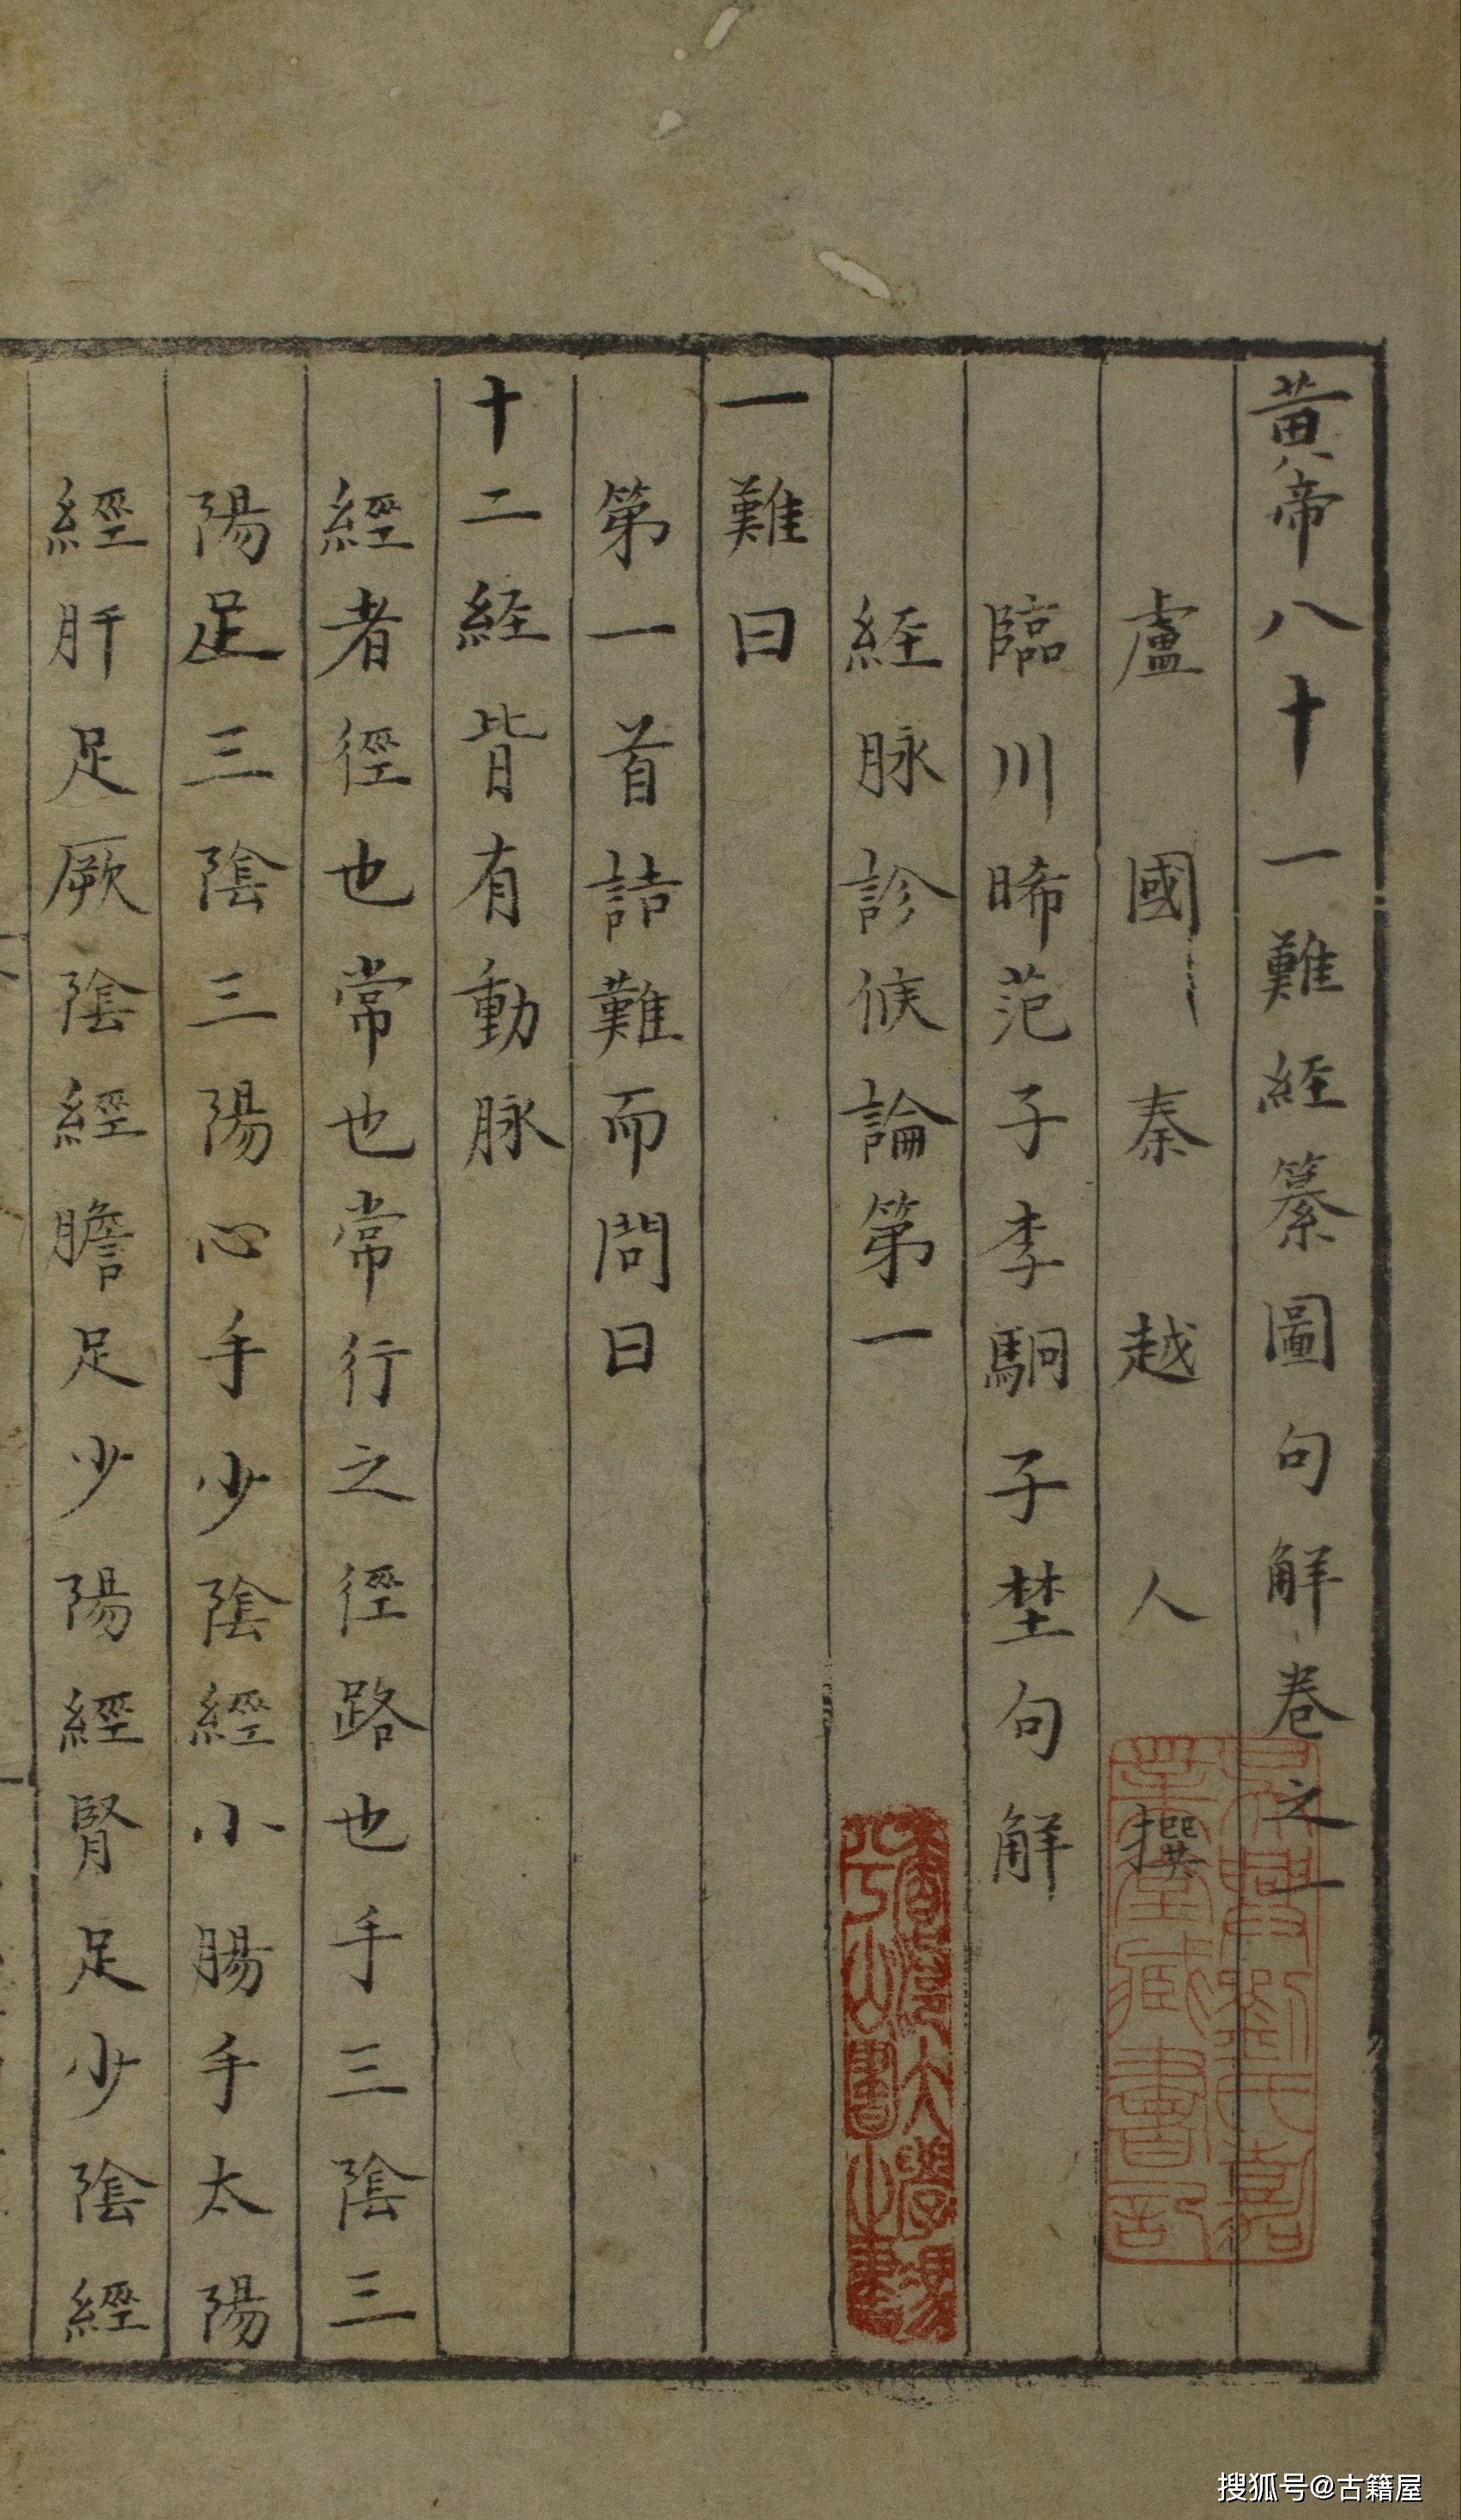 黄帝八十一難経纂圖句解卷之一
盧國秦越人撰
臨川晞范子李駉子埜句解
経脉診候論第一
一難曰
第一首詰難而問曰
十二経皆有動脉
經者徑也常也常行之徑路也手三陰三
陽足三陰三陽心手少陰經小腸手太陽
經肝足厥陰經膽足少陽經腎足少陰經
搜狐号@古籍屋